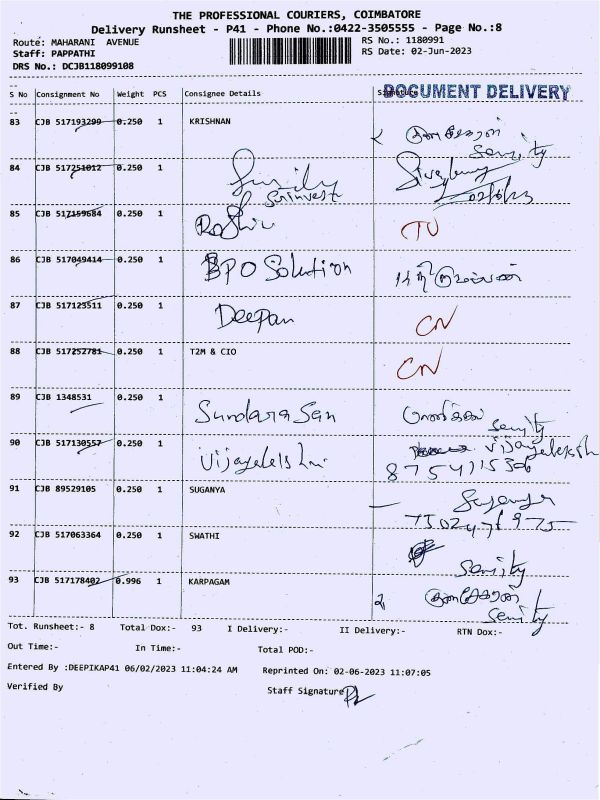 THE PROFESSIONAL COURIERS, COIMBATORE
Delivery Runsheet - P41 - Phone No.:0422-3505555 - Page No.:8
Route: MAHARANI AVENUE RS No.: 1180991
Staff: PAPPATHI RS Date: 02-Jun-2023
DRS No.: DCJB118099108
DOCUMENT DELIVERY
S No Consignment No Weight PCS Consignee Details Signature
83 CJB 517193299 0.250 1 KRISHNAN
Senity
84 CJB 517251012 0.250 1
85 CJB 517159684 0.250 1 TU
86 CJB 517049414 0.250 1 BPO Solution
87 CJB 517123511 0.250 1 Deepan CN
88 CJB 517252781 0.250 1 T2M & CIO CN
89 CJB 1348531 0.250 1 Sundara San
Senity
90 CJB 517130557 0.250 1 Vijayalelshmi
8754715306
91 CJB 89529105 0.250 1 SUGANYA
92 CJB 517063364 0.250 1 SWATHI
Senity
93 CJB 517178402 0.996 1 KARPAGAM
Senity
Tot. Runsheet:- 8 Total Dox:- 93 I Delivery:- II Delivery:- RTN Dox:-
Out Time:- In Time:- Total POD:-
Entered By :DEEPIKAP41 06/02/2023 11:04:24 AM Reprinted On: 02-06-2023 11:07:05
Verified By Staff Signature